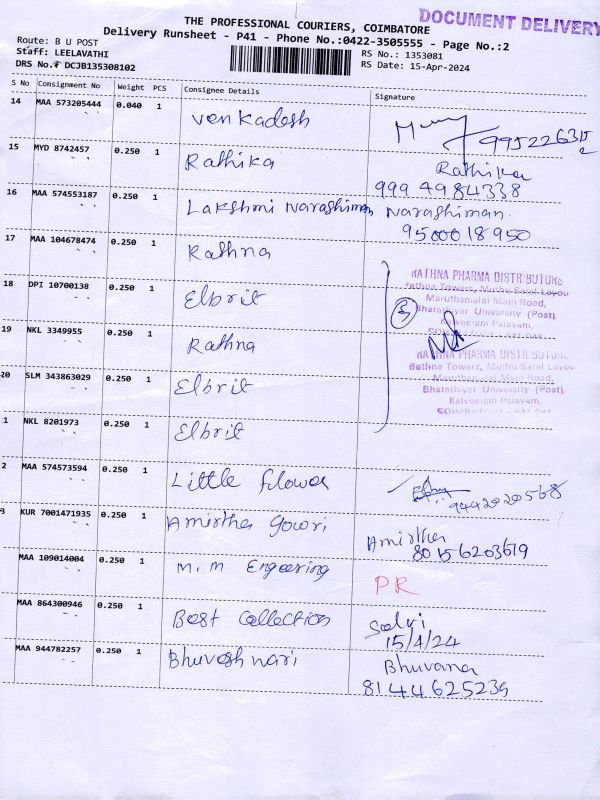 DOCUMENT DELIVERY
THE PROFESSIONAL COURIERS, COIMBATORE
Delivery Runsheet - P41 - Phone No.:0422-3505555 - Page No.:2
Route: B U POST
RS No.: 1353081
Staff: LEELAVATHI
RS Date: 15-Apr-2024
DRS No.# DCJB135308102
S No Consignment No Weight PCS Consignee Details Signature
14 MAA 573205444 0.040 1 Venkadesh
15 MYD 8742457 0.250 1 Rathika Rathika
9994984338
16 MAA 574553187 0.250 1 Lakshmi Narashiman Narashiman.
9500018950
17 MAA 104678474 0.250 1 Rathna
18 DPI 10700138 0.250 1 Elbrit
19 NKL 3349955 0.250 1 Rathna
20 SLM 343863029 0.250 1 Elbrit
1 NKL 8201973 0.250 1 Elbrit
5
RATHNA PHARMA DISTRIBUTORS
Rathna Towers, Muthu Sami Layou
Maruthamalai Main Road,
Bharathiyar University (Post),
Kalveeram Palayam,
RATHNA PHARMA DISTRIBUTORS
Rathna Towers, Muthu Sami Layou
Maruthamalai Main Road,
Bharathiyar University (Post),
Kalveeram Palayam,
2 MAA 574573594 0.250 1 Little flower
9442020568
3 KUR 7001471935 0.250 1 Amirtha gowri Amirtha
80156203619
MAA 109014004 0.250 1 M. M Engeering PR
MAA 864300946 0.250 1 Best Collection Selvi
15/4/24
MAA 944782257 0.250 1 Bhuveshwari Bhuvana
8144625239